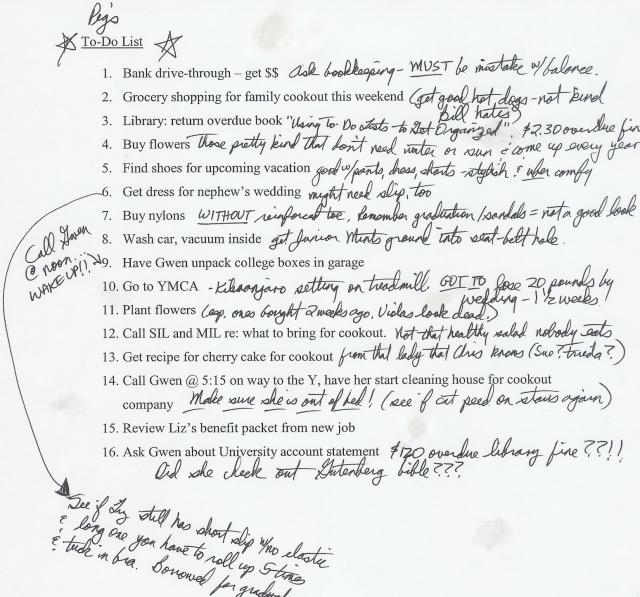 Peg's
To-Do List
1. Bank drive-through – get $$ Ask bookkeeping - MUST be mistake w/balance.
2. Grocery shopping for family cookout this weekend (get good hot dogs - not kind
Bill hates)
3. Library: return overdue book "Using To-Do Lists to Get Organized" $2.30 overdue fine
4. Buy flowers Those pretty kind that don't need water or sun & come up every year
5. Find shoes for upcoming vacation good w/pants, dress, shorts - stylish & uber comfy
6. Get dress for nephew's wedding might need slip, too
7. Buy nylons WITHOUT reinforced toe. Remember graduation/sandals = not a good look
8. Wash car, vacuum inside get Junior Mints ground into seat-belt hole.
Call Gwen
@ noon...
WAKE UP!!
9. Have Gwen unpack college boxes in garage
10. Go to YMCA - Kilimanjaro setting on treadmill. GOT TO lose 20 pounds by
wedding - 1 1/2 weeks
11. Plant flowers (esp. ones bought 2 weeks ago. Violas look dead.)
12. Call SIL and MIL re: what to bring for cookout. Not that healthy salad nobody eats
13. Get recipe for cherry cake for cookout from that lady that Chris knows (Sue? Trieda?)
14. Call Gwen @ 5:15 on way to the Y, have her start cleaning house for cookout
company Make sure she is out of bed! (see if cat peed on stairs again)
15. Review Liz's benefit packet from new job
16. Ask Gwen about University account statement $120 overdue library fine??!!
Did she check out Gutenberg bible???
See if Liz still has short slip w/no elastic
& long one you have to roll up 5 times
& tuck in bra. Borrowed for